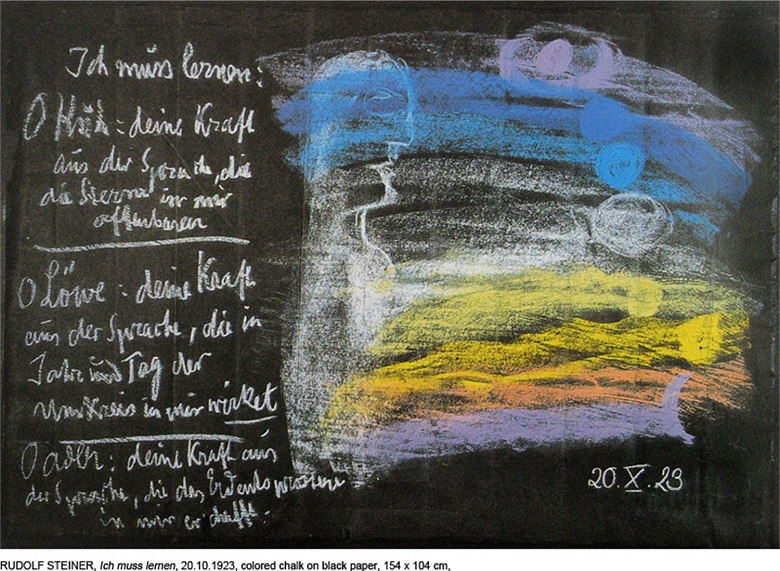 Ich muss lernen:
O Kuh: deine Kraft
aus der Sprache, die
die Sterne in mir
offenbaren
O Löwe: deine Kraft
aus der Sprache, die in
Jahr und Tag der
Umkreis in mir wirket
O Adler: deine Kraft aus
der Sprache, die das
in mir erschafft.
20.X.23
RUDOLF STEINER, Ich muss lernen, 20.10.1923, colored chalk on black paper, 154 x 104 cm,